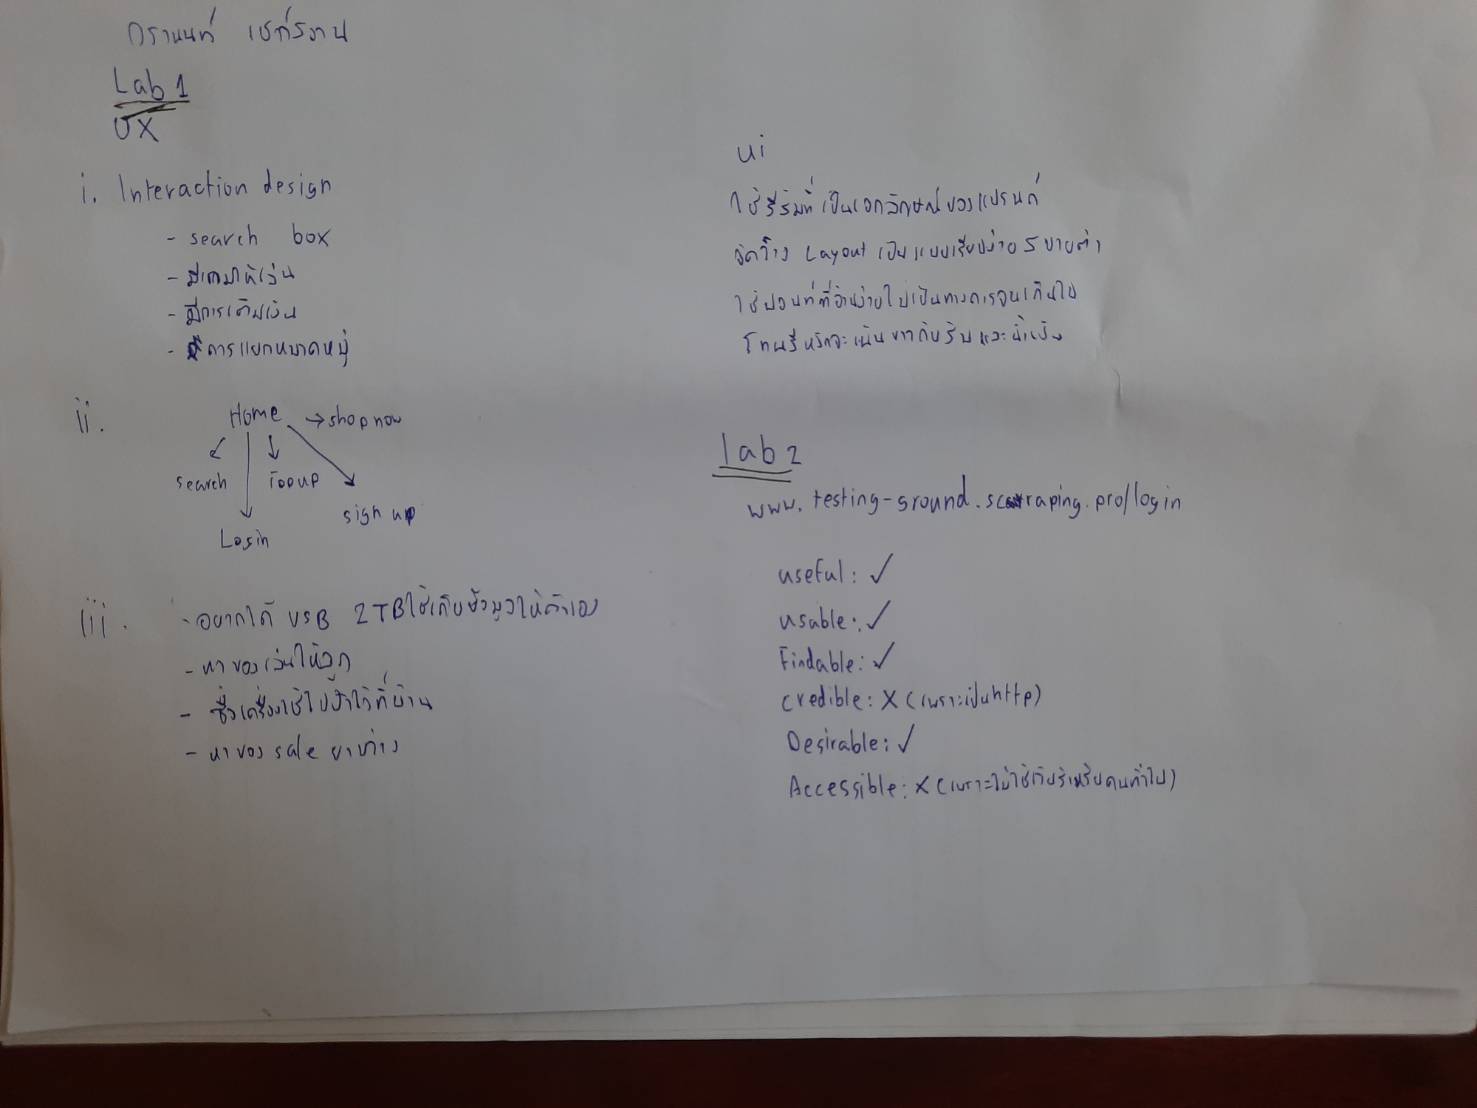 Lab 1
UX
i. Interaction design
- search box
- มีเกมให้เล่น
- มีการเติมเงิน
- มีการแยกหมวดหมู่
ii.
Home → shop now
search
Topup
sign up
Login
iii.
- อยากได้ USB 2TB ใช้เก็บข้อมูลให้ตัวเอง
- หาของเล่นให้ลูก
- ซื้อเครื่องใช้ไฟฟ้าไว้ที่บ้าน
- หาของ sale
ui
ใช้สีส้มที่เป็นเอกลักษณ์ของแบรนด์
จัดวาง Layout เป็นแบบเรียบง่าย สบายตา
ใช้ฟอนท์ที่อ่านง่ายไม่เป็นทางการจนเกินไป
โทนสีหลักจะเน้นขาวกับส้มและน้ำเงิน
lab 2
www.testing-ground.scraping.pro/login
useful: ✓
usable: ✓
Findable: ✓
credible: X (เพราะเป็น http)
Desirable: ✓
Accessible: X (เพราะไม่ใช่เว็บสำหรับคนทั่วไป)